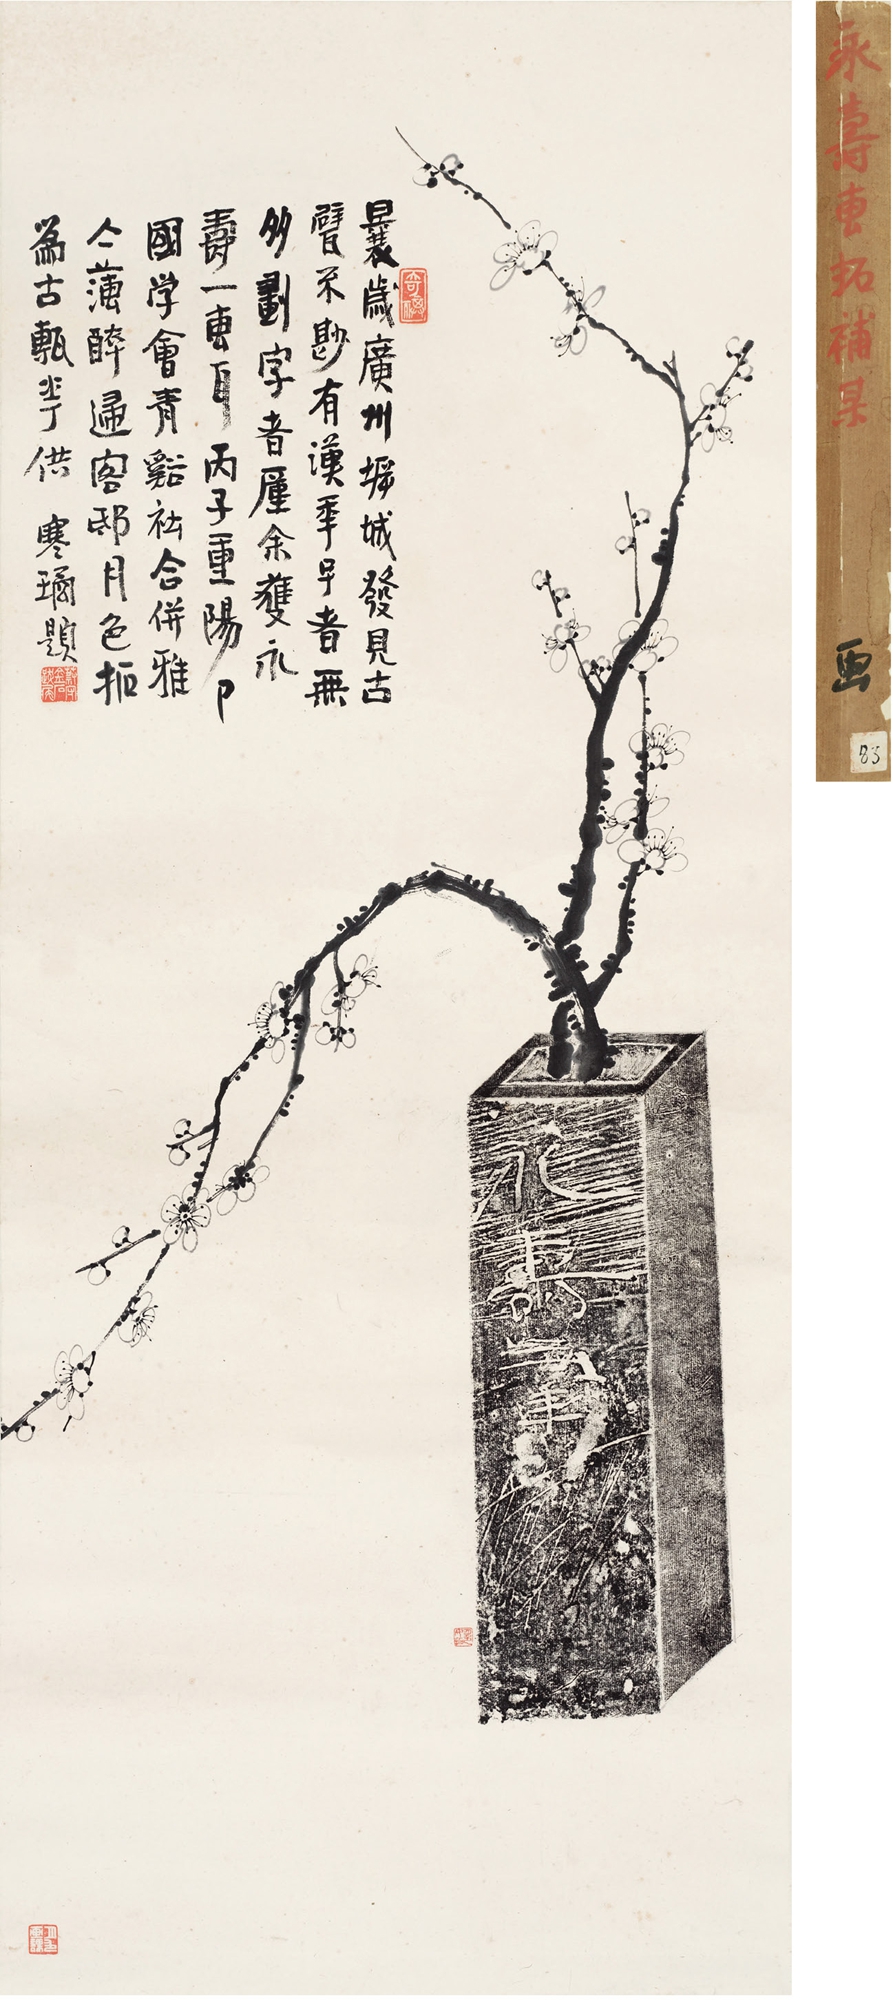 曩歲廣州城發見古
甓不尠有漢年号者無
多劃字者廑余獲永
壽一專耳丙子重陽卩
國学會青谿社合併雅
亼薄醉逥客邸月色
爲古甎華供 寒瓊題
永壽
永壽專拓補某
画
83